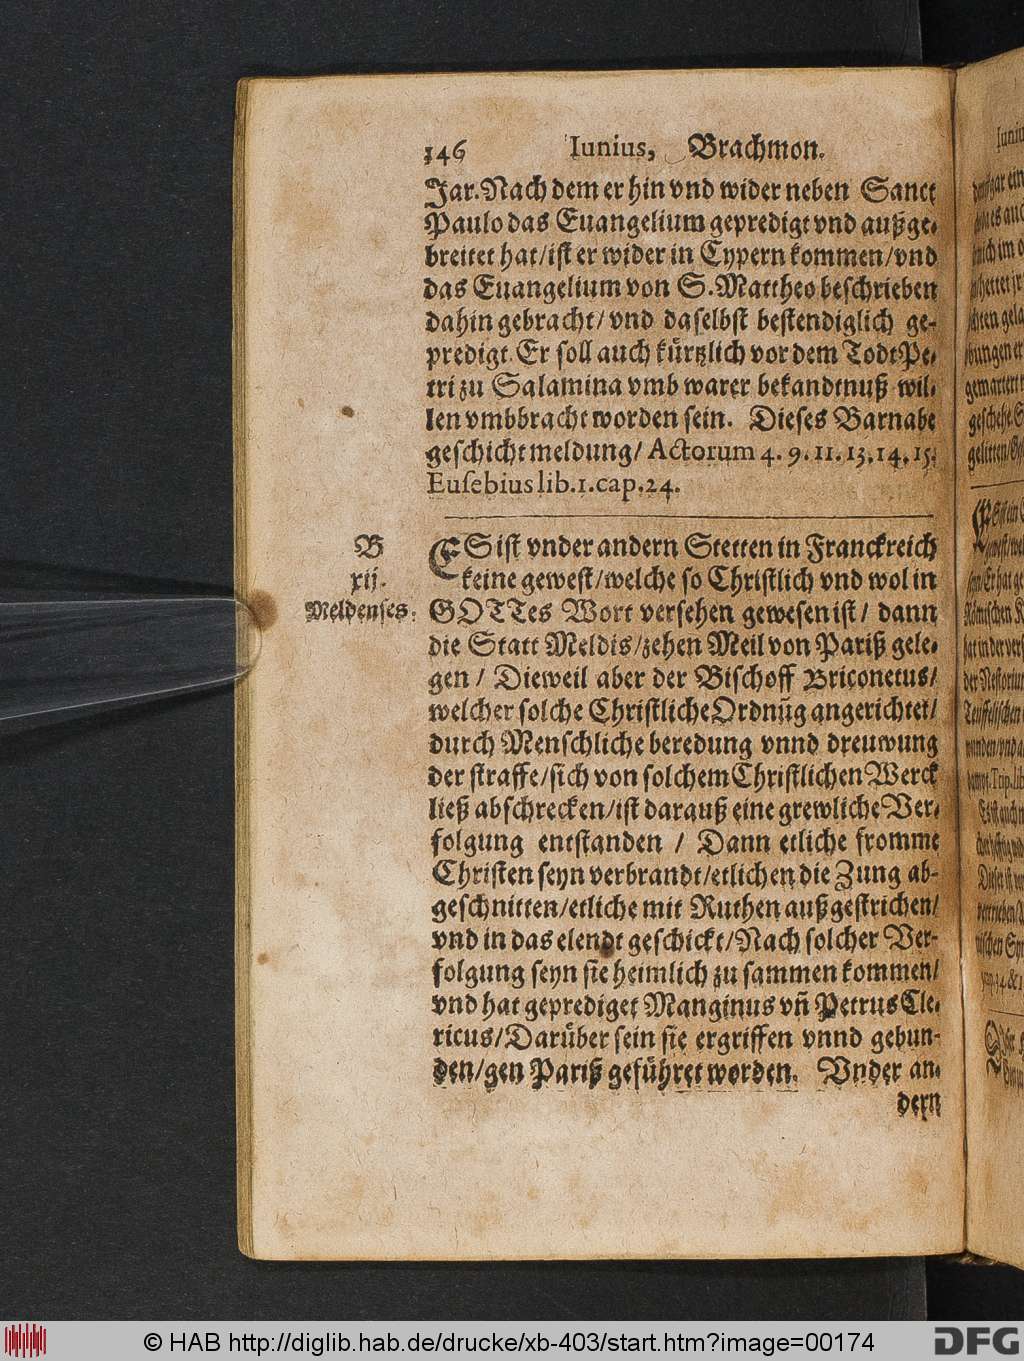 146 Iunius, Brachmon.
Jar. Nach dem er hin vnd wider neben Sanct
Paulo das Euangelium gepredigt vnd außge-
breitet hat/ist er wider in Cypern kommen/vnd
das Euangelium von S. Mattheo beschrieben
dahin gebracht/vnd daselbst bestendiglich ge-
predigt. Er soll auch kürtzlich vor dem Todt Pe-
tri zu Salamina vmb warer bekandtnuß wil-
len vmbbracht worden sein. Dieses Barnabe
geschicht meldung/ Actorum 4. 9. 11. 13. 14. 15.
Eusebius lib. 1. cap. 24.
B
xij.
Meldenses.
ES ist vnder andern Stetten in Franckreich
keine gewest/welche so Christlich vnd wol in
GOTTes Wort versehen gewesen ist/ dann
die Statt Meldis/zehen Meil von Pariß gele-
gen / Dieweil aber der Bischoff Briconetus/
welcher solche Christliche Ordnūg angerichtet/
durch Menschliche beredung vnnd dreuwung
der straffe/sich von solchem Christlichen Werck
ließ abschrecken/ist darauß eine grewliche Ver-
folgung entstanden / Dann etliche fromme
Christen seyn verbrandt/etlichen die Zung ab-
geschnitten/etliche mit Ruthen außgestrichen/
vnd in das elendt geschickt/Nach solcher Ver-
folgung seyn sie heimlich zu sammen kommen/
vnd hat geprediget Manginus vñ Petrus Cle-
ricus/Darüber sein sie ergriffen vnnd gebun-
den/gen Pariß geführet worden. Vnder an-
dern
© HAB http://diglib.hab.de/drucke/xb-403/start.htm?image=00174
DFG